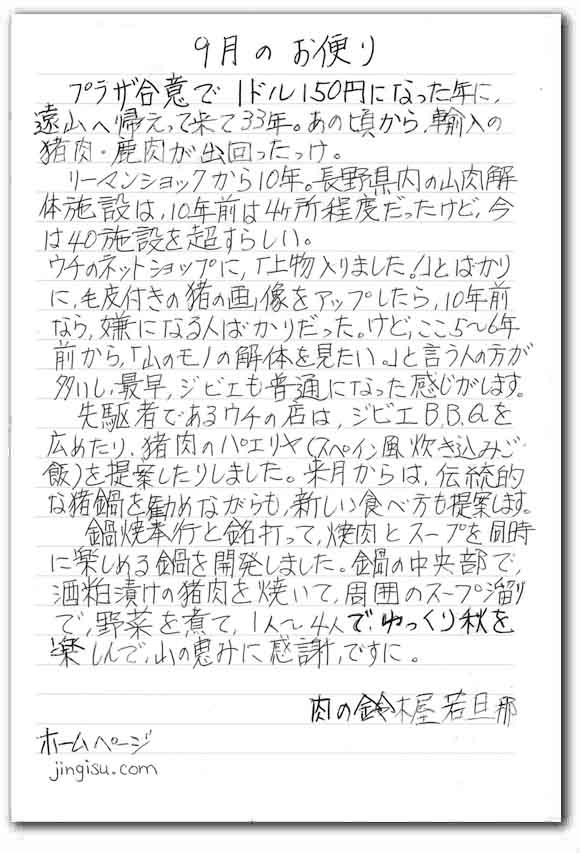 9月のお便り
プラザ合意で1ドル150円になった年に、
遠山へ帰えって来て33年。あの頃から、輸入の
猪肉・鹿肉が出回ったっけ。
リーマンショックから10年。長野県内の山肉解
体施設は、10年前は4ヶ所程度だったけど、今
は40施設を超すらしい。
ウチのネットショップに、「上物入りました!」とばかり
に、毛皮付きの猪の画像をアップしたら、10年前
なら、嫌になる人ばかりだった。けど、ここ5〜6年
前から、「山のモノの解体を見たい。」と言う人の方が
多いし、最早、ジビエも普通になった感じがします。
先駆者であるウチの店は、ジビエB,B,Qを
広めたり、猪肉のパエリヤ(スペイン風炊き込みご
飯)を提案したりしました。来月からは、伝統的
な猪鍋を勧めながらも、新しい食べ方も提案します。
鍋焼奉行と銘打って、焼肉とスープを同時
に楽しめる鍋を開発しました。鍋の中央部で、
酒粕漬けの猪肉を焼いて、周囲のスープ溜り
で、野菜を煮て、1人〜4人で、ゆっくり秋を
楽しんで、山の恵みに感謝、ですに。
肉の鈴木屋若旦那
ホームページ
jingisu.com